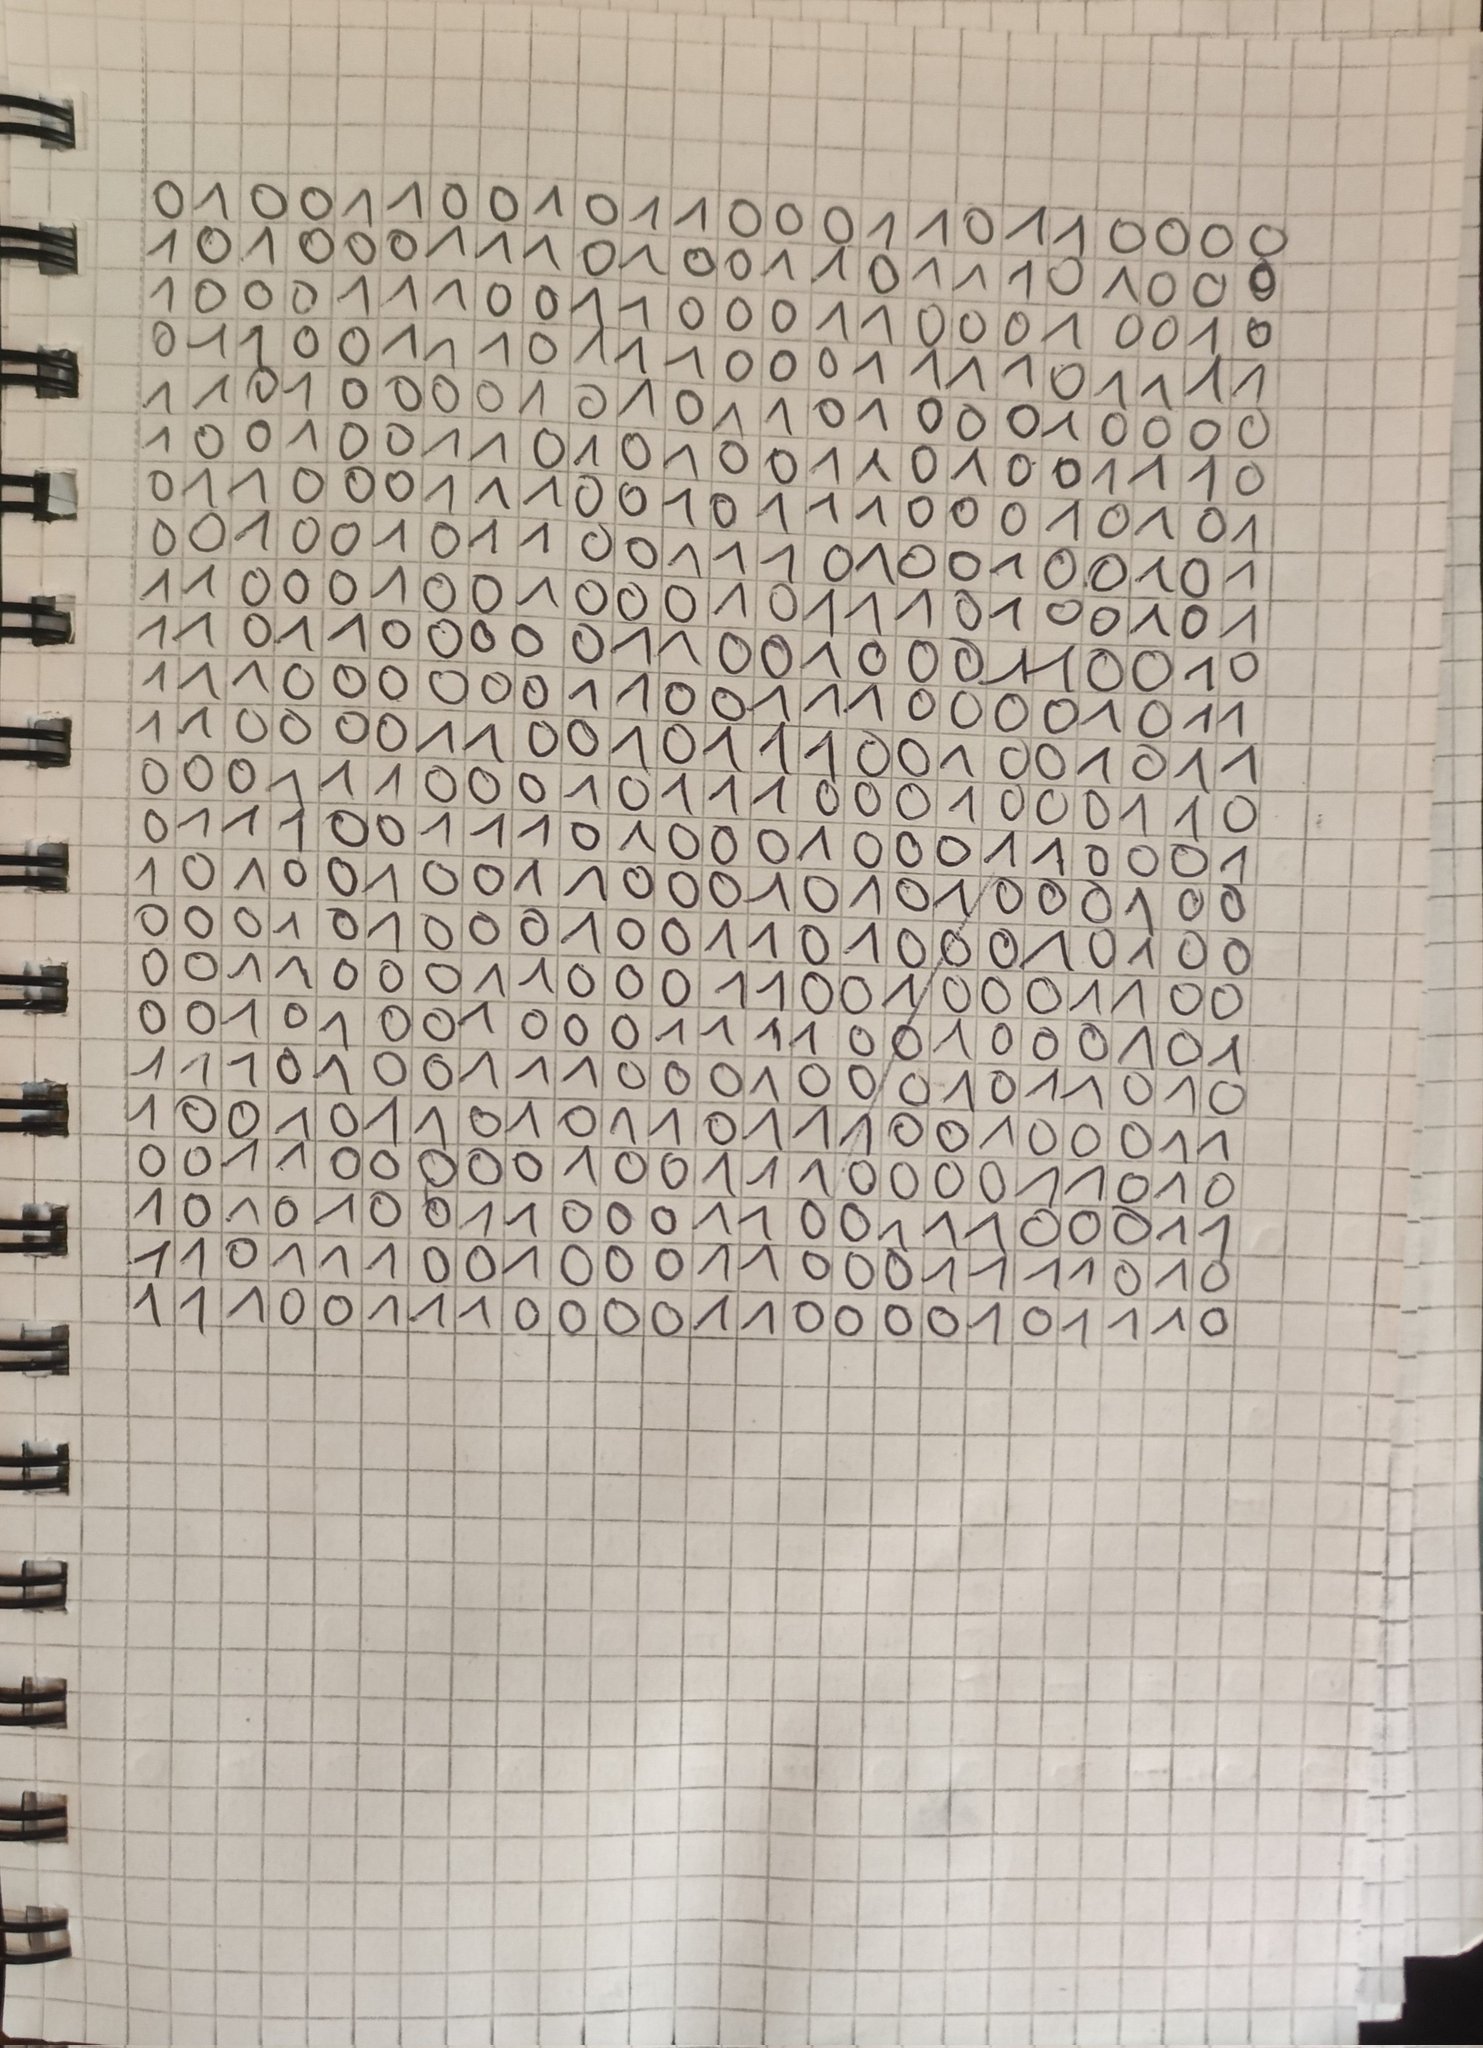 010011001011000110110000
101000111010011011101000
100011100110001100010010
011001110111000111101111
110100001010110100010000
100100110101001101001110
011000111001011100010101
001001011001110100100101
110001001000101110100101
110110000011001000110010
111000000110011100001011
110000110010111001001011
000111000101110001000110
011100111010001000110001
101001001100010101000100
000101000100110100010100
001100011000110010001100
001010010001111001000101
111010011100010001011010
100101101011011100100011
001100000100111000011010
101010011000110011100011
110111001000110001111010
111001110000110000101110